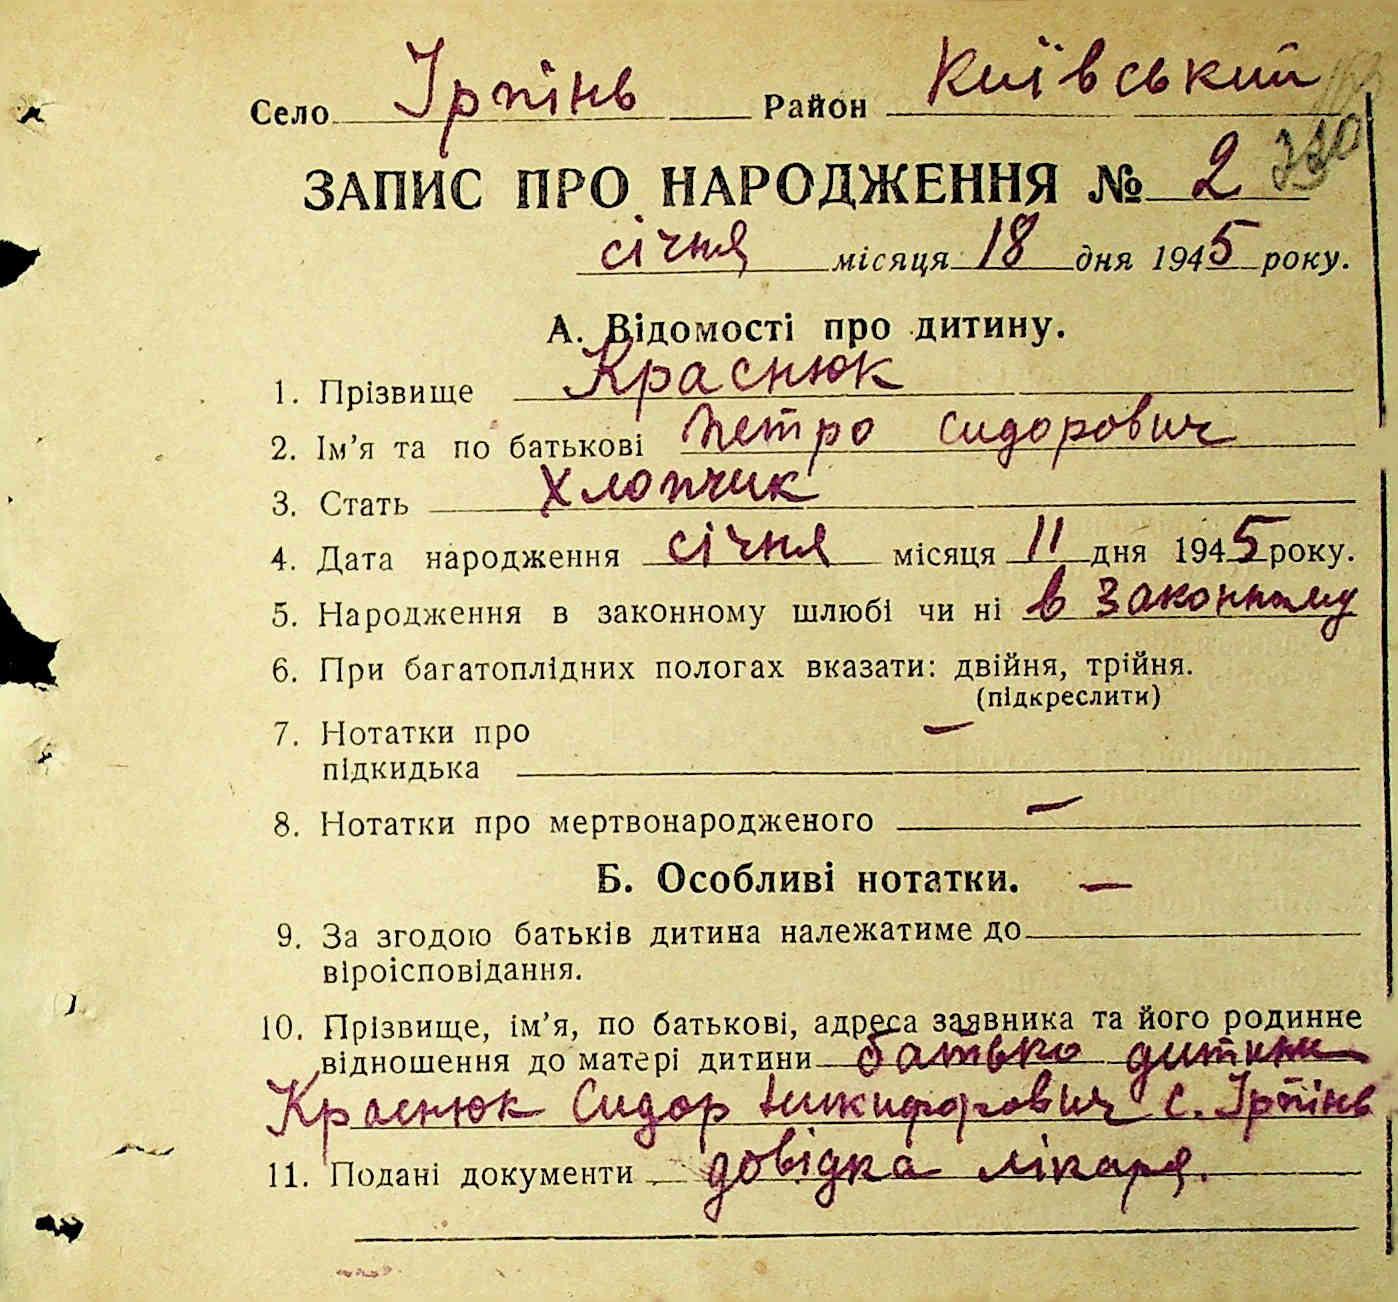 Село Ірпінь Район Київський
ЗАПИС ПРО НАРОДЖЕННЯ № 2
січня місяця 18 дня 1945 року.
А. Відомості про дитину.
1. Прізвище Краснюк
2. Ім'я та по батькові Петро Сидорович
3. Стать Хлопчик
4. Дата народження січня місяця 11 дня 1945 року.
5. Народження в законному шлюбі чи ні в законному
6. При багатоплідних пологах вказати: двійня, трійня.
(підкреслити)
7. Нотатки про —
підкидька
8. Нотатки про мертвонародженого —
Б. Особливі нотатки. —
9. За згодою батьків дитина належатиме до
віроісповідання.
10. Прізвище, ім'я, по батькові, адреса заявника та його родинне
відношення до матері дитини батько дитини
Краснюк Сидор Никифорович с. Ірпінь
11. Подані документи довідка лікаря.